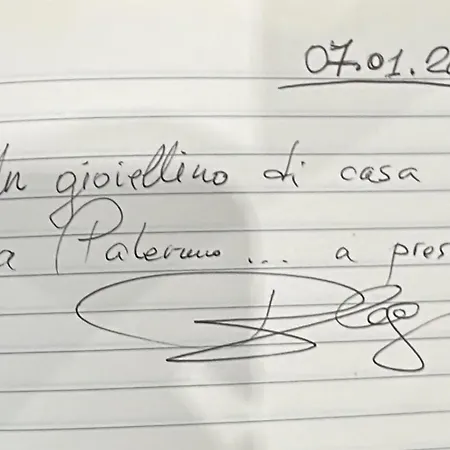 07.01.2
n gioiellino di casa
a Palermo... a pres